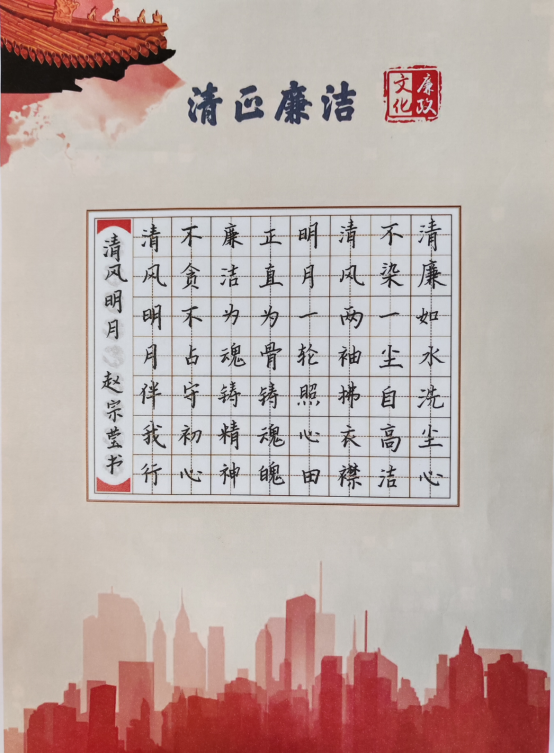 清正廉洁
廉政
文化
清廉如水洗尘心
不染一尘自高洁
清风两袖拂衣襟
明月一轮照心田
正直为骨铸魂魄
廉洁为魂铸精神
不贪不占守初心
清风明月伴我行
清风明月 赵宗莹书